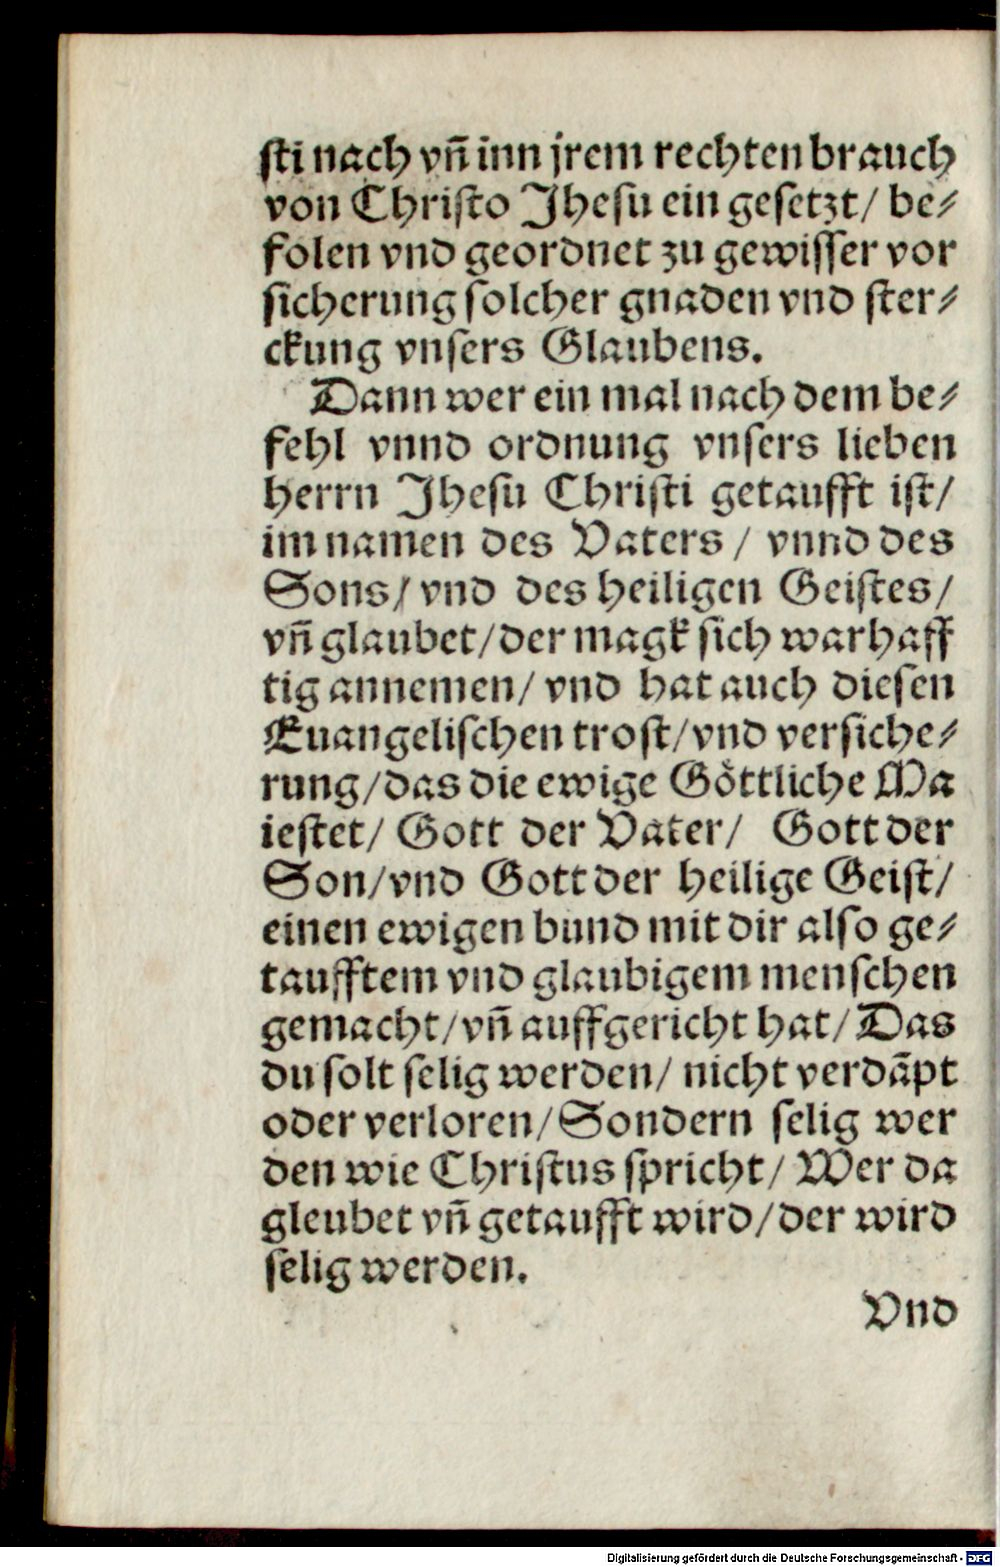 sti nach vñ inn jrem rechten brauch
von Christo Jhesu ein gesetzt/ be⸗
folen vnd geordnet zu gewisser vor
sicherung solcher gnaden vnd ster⸗
ckung vnsers Glaubens.
Dann wer ein mal nach dem be⸗
fehl vnnd ordnung vnsers lieben
herrn Jhesu Christi getaufft ist/
im namen des Vaters / vnnd des
Sons/ vnd des heiligen Geistes/
vñ glaubet/der magk sich warhaff
tig annemen/ vnd hat auch diesen
Euangelischen trost/vnd versiche⸗
rung/das die ewige Göttliche Ma
iestet/ Gott der Vater/ Gott der
Son/vnd Gott der heilige Geist/
einen ewigen bund mit dir also ge⸗
taufftem vnd glaubigem menschen
gemacht/vñ auffgericht hat/ Das
du solt selig werden/ nicht verdãpt
oder verloren/Sondern selig wer
den wie Christus spricht/ Wer da
gleubet vñ getaufft wird/der wird
selig werden.
Vnd
Digitalisierung gefördert durch die Deutsche Forschungsgemeinschaft - DFG